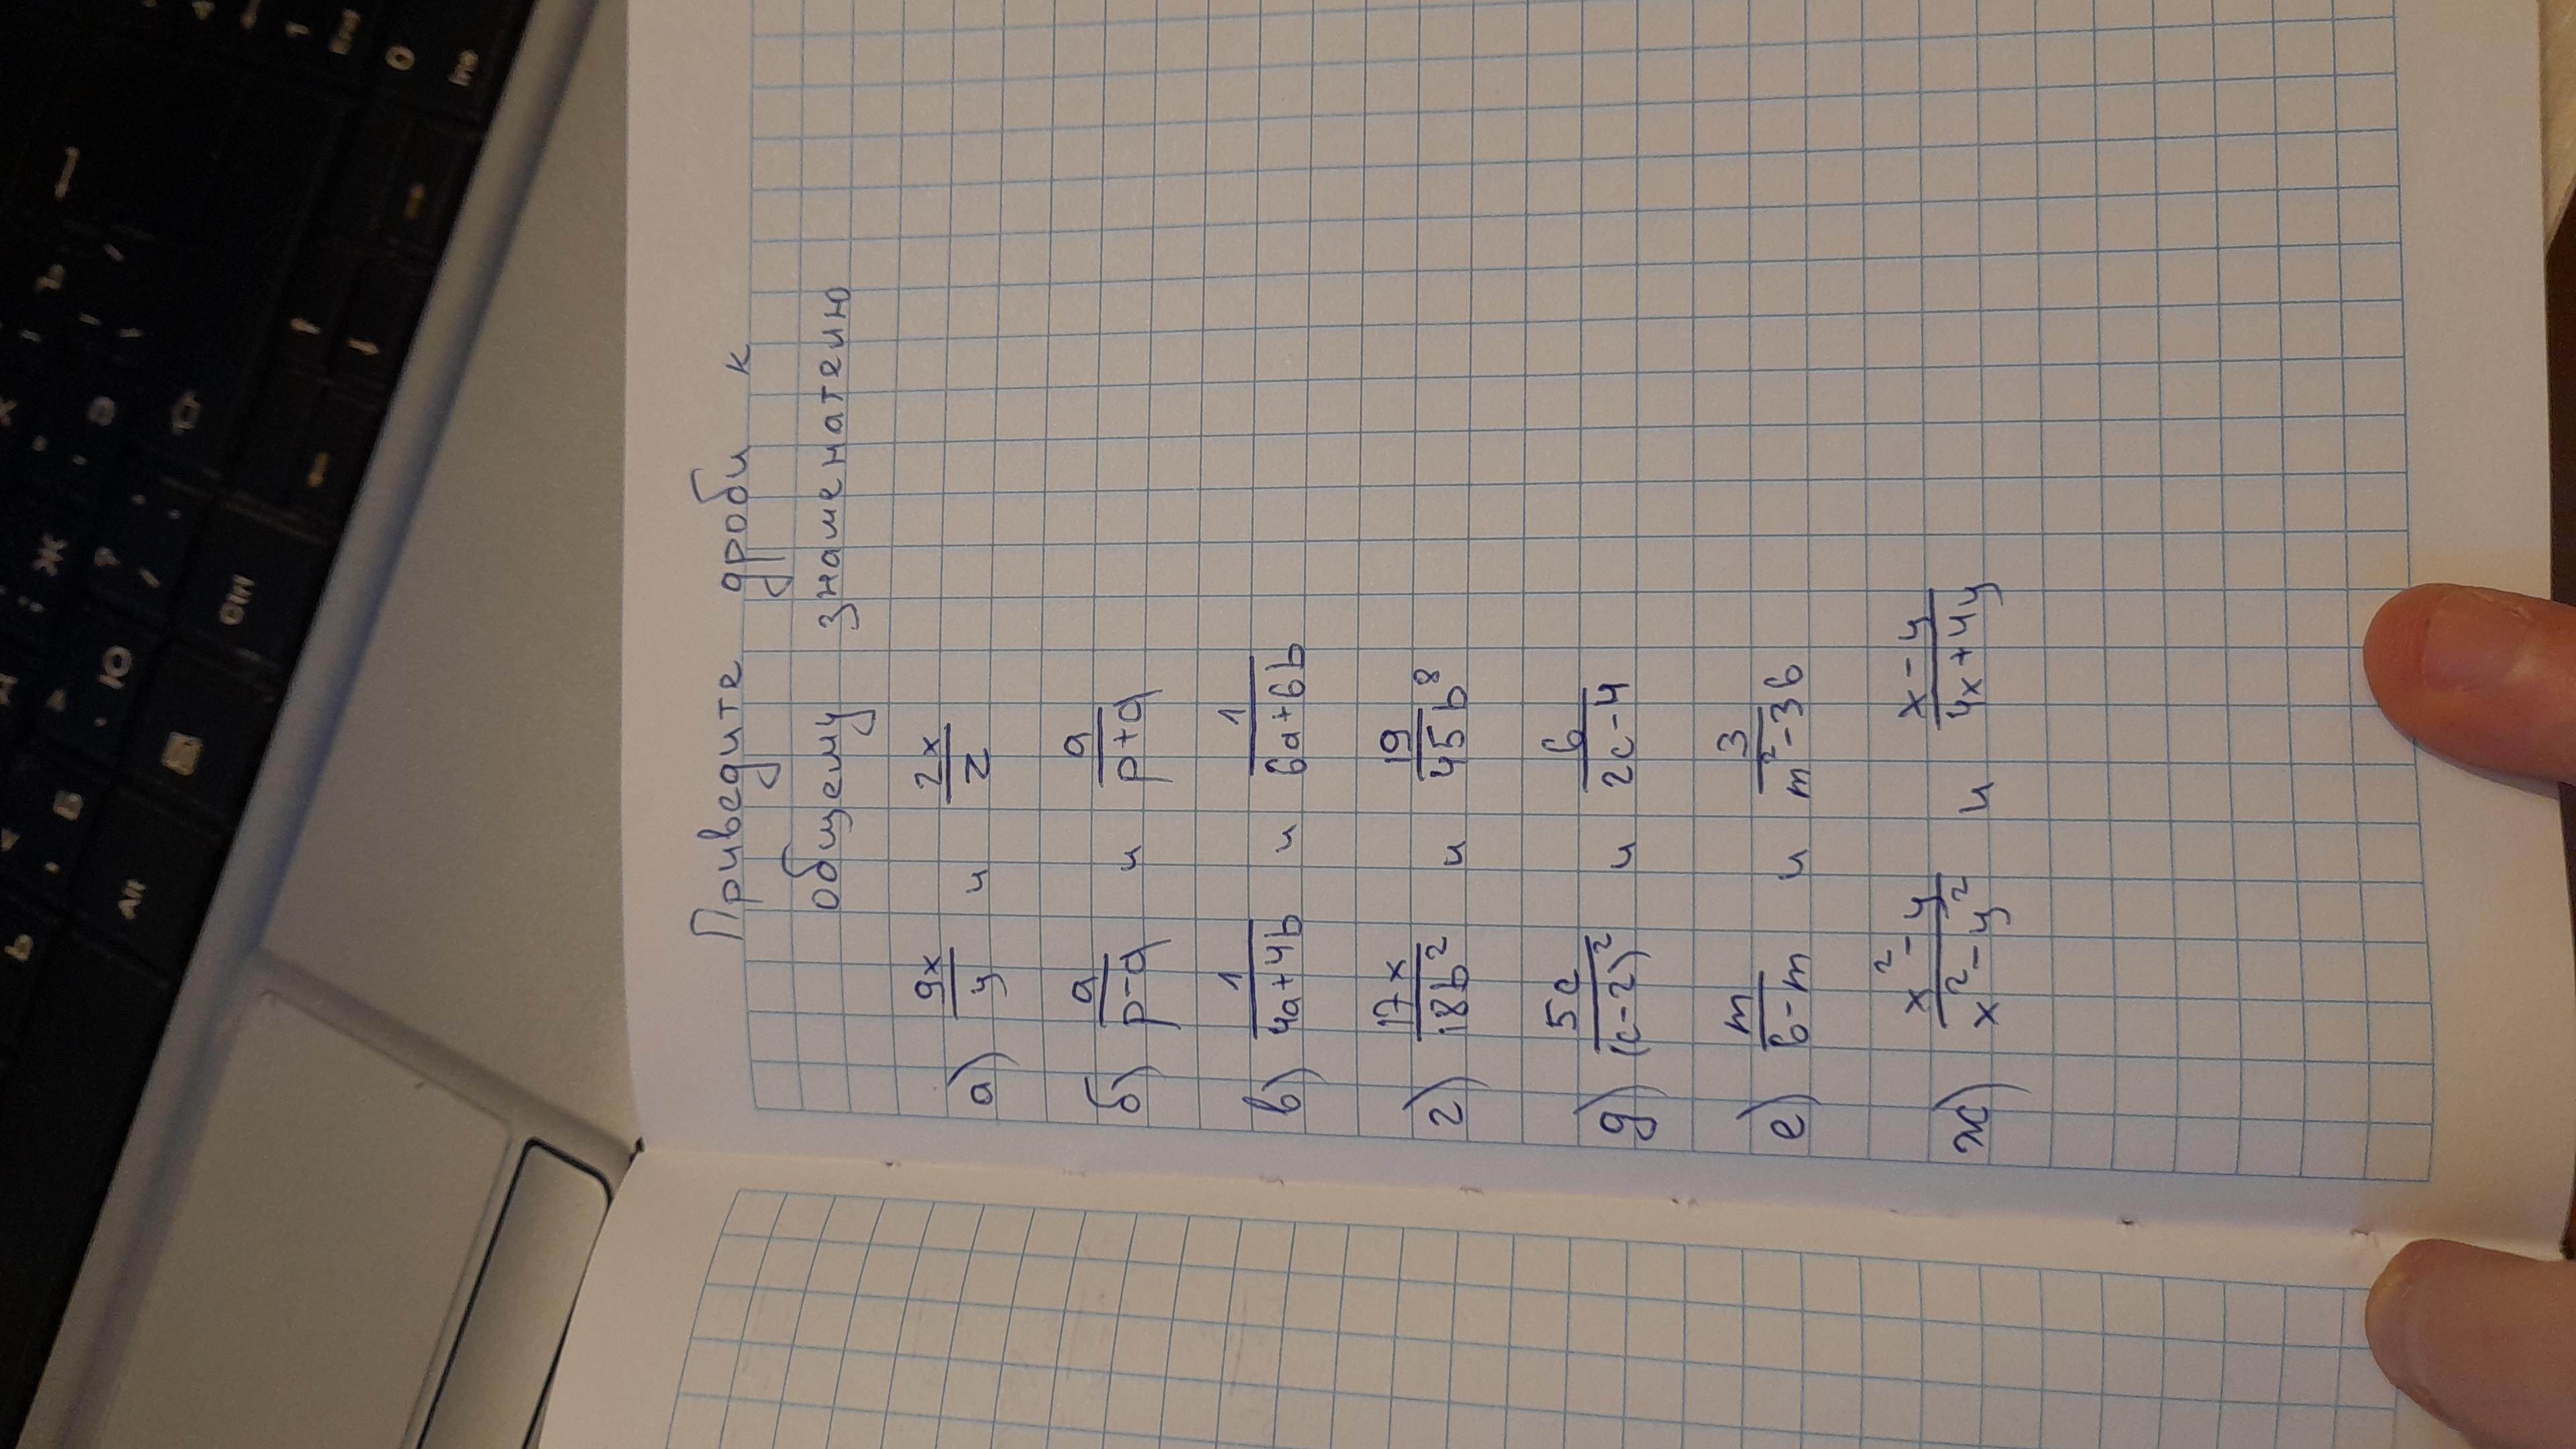 Приведите дроби к
общему знаменателю
а) 9x/y и 2x/z
б) a/(p-q) и a/(p+q)
в) 1/(4a+4b) и 1/(6a+6b)
г) 17x/18b² и 19/45b⁸
д) 5c/(c-2)² и 6/(2c-4)
е) m/(6-m) и 3/(m²-36)
ж) (x²-y)/(x²-y²) и (x-y)/(4x+4y)
Ctrl
Alt
End
Ins
0
Ж
Ю
Б
Ь